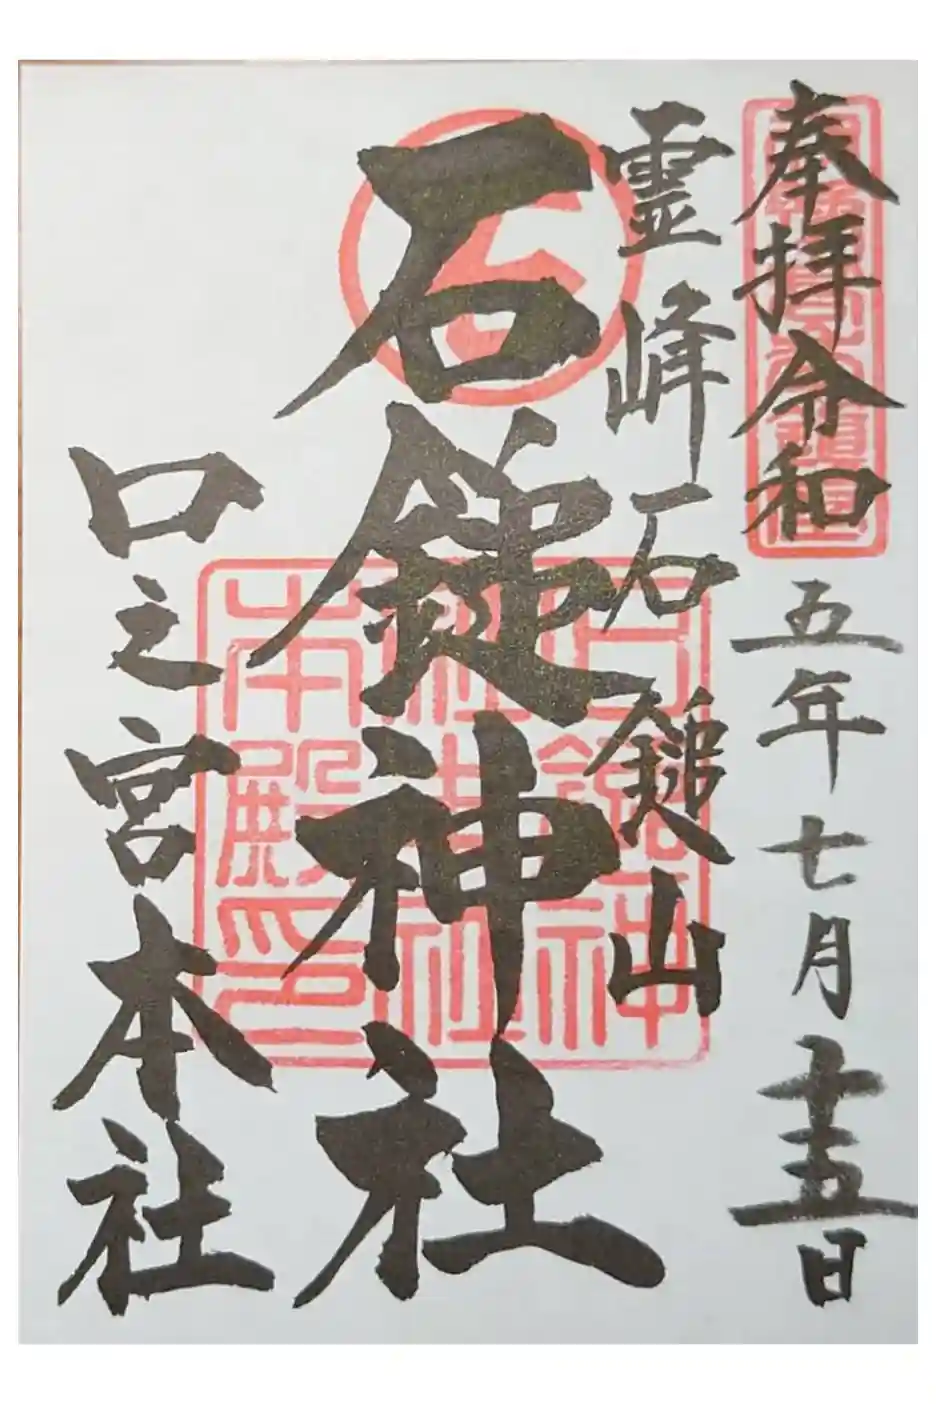 奉拝令和五年七月十五日
霊峰石鎚山
石鎚神社
口之宮本社
石
石鎚神社
本殿印